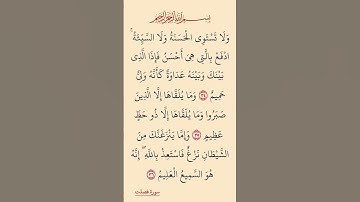 بسم الله الرحمن الرحيم
وَلَا تَسْتَوِى الْحَسَنَةُ وَلَا السَّيِّئَةُ ۚ
ادْفَعْ بِالَّتِى هِىَ أَحْسَنُ فَإِذَا الَّذِى
بَيْنَكَ وَبَيْنَهُ عَدَاوَةٌ كَأَنَّهُ وَلِىٌّ
حَمِيمٌ ٣٤ وَمَا يُلَقَّاهَا إِلَّا الَّذِينَ
صَبَرُوا وَمَا يُلَقَّاهَا إِلَّا ذُو حَظٍّ
عَظِيمٍ ٣٥ وَإِمَّا يَنْزَغَنَّكَ مِنَ
الشَّيْطَانِ نَزْغٌ فَاسْتَعِذْ بِاللَّهِ ۖ إِنَّهُ
هُوَ السَّمِيعُ الْعَلِيمُ ٣٦
سورة فصلت